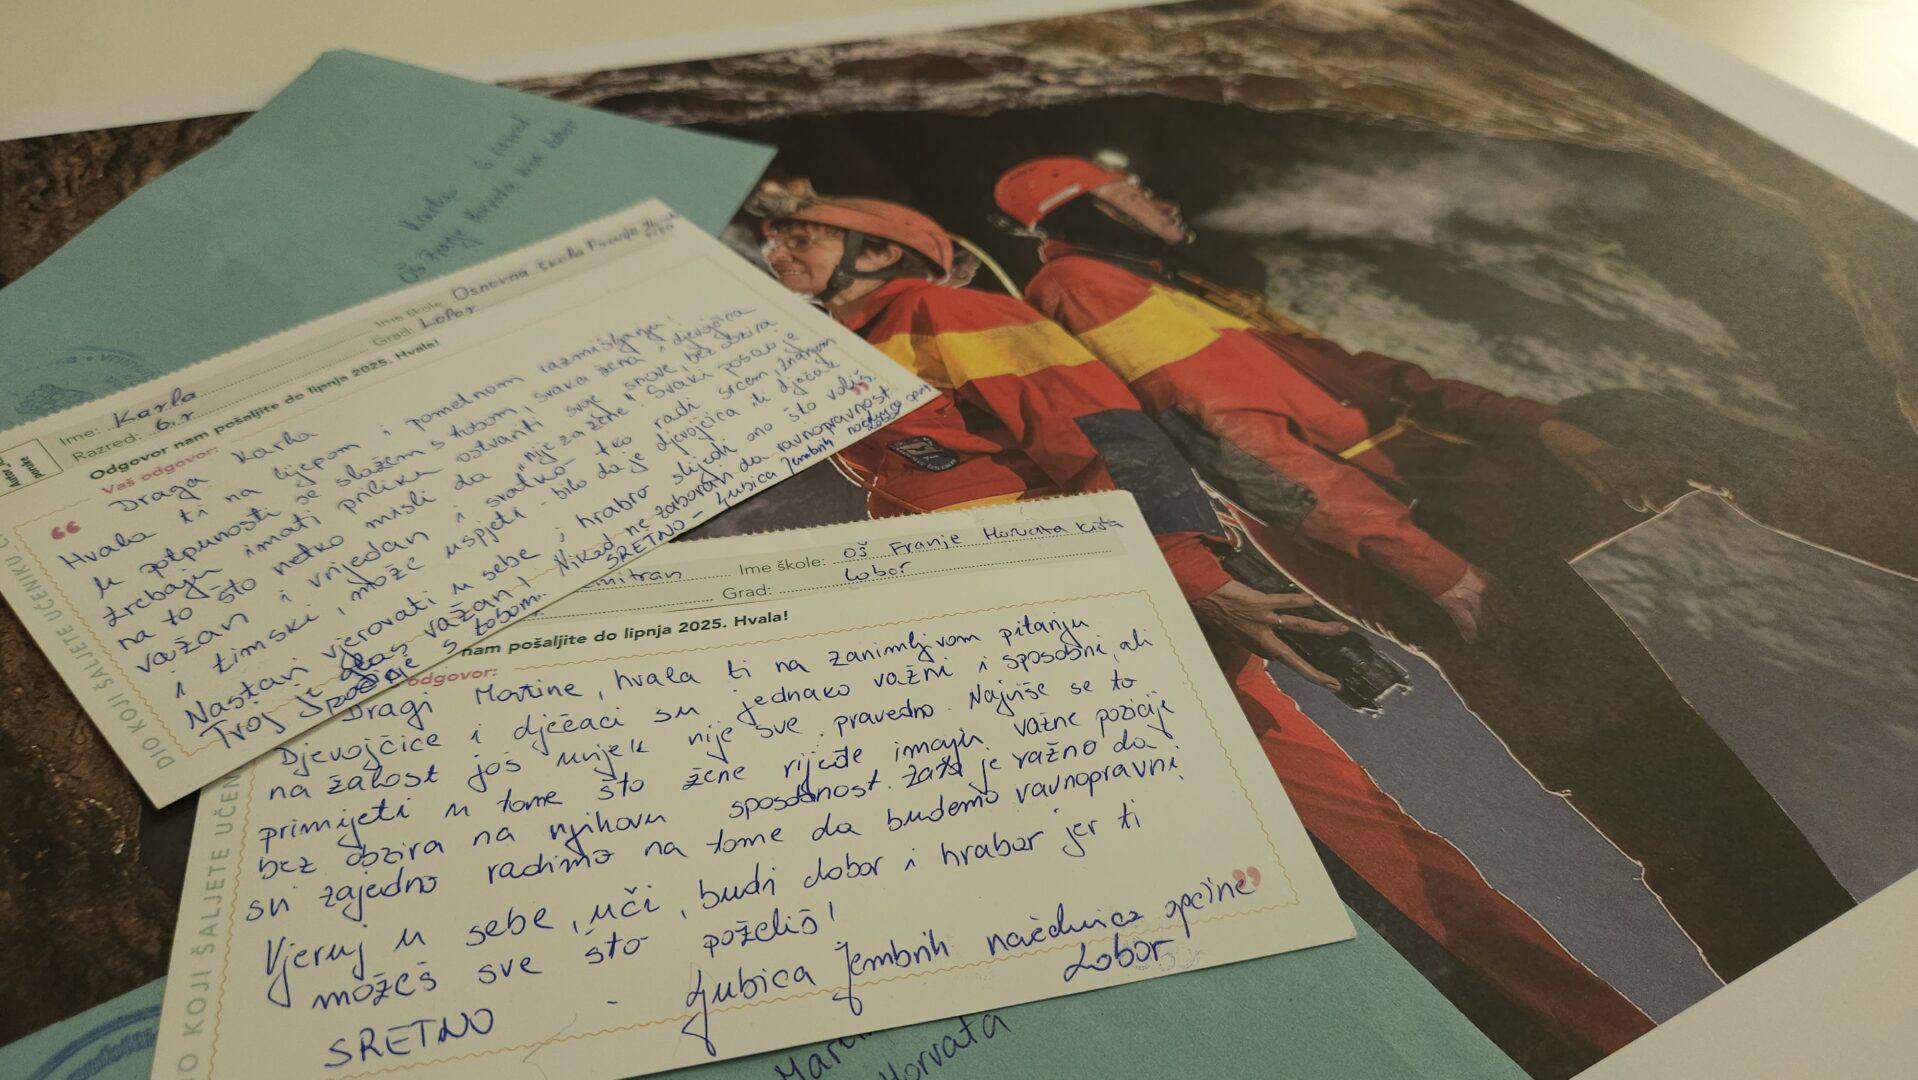 Karla 6 razred
Ime: Karla
Ime škole: Osnovna škola Franje
Razred: 6.r
Grad: Lobor
Odgovor nam pošaljite do lipnja 2025. Hvala!
Vaš odgovor:
Draga Karla
Hvala ti na lijepom i pametnom razmišljanju!
U potpunosti se slažem s tobom, svaka žena i djevojčica
trebaju imati priliku ostvariti svoje snove, bez obzira
na to što netko misli da "nije za žene". Svaki posao je
važan i vrijedan i svatko tko radi srcem, znanjem
i timski, može uspjeti - bilo da je djevojčica ili dječak
Nastavi vjerovati u sebe i hrabro slijedi ono što voliš.
Tvoj glas je važan! Nikad ne zaboravi da ravnopravnost
počinje s tobom. SRETNO - Ljubica Jembrih načelnica općine
Lobor
DIO KOJI ŠALJETE UČENIKU
Ime škole: OŠ Franje Horvata Kiša
Grad: Lobor
nam pošaljite do lipnja 2025. Hvala!
odgovor:
Dragi Martine, hvala ti na zanimljivom pitanju
Djevojčice i dječaci su jednako važni i sposobni, ali
na žalost još uvijek nije sve pravedno. Najviše se to
primijeti u tome što žene rijeđe imaju važne pozicije
bez obzira na njihovu sposobnost. Zato je važno da
svi zajedno radimo na tome da budemo ravnopravni.
Vjeruj u sebe, uči, budi dobar i hrabar jer ti
možeš sve što poželiš!
SRETNO - Ljubica Jembrih načelnica općine
Lobor
DIO KOJI ŠALJETE UČEN
Horvata